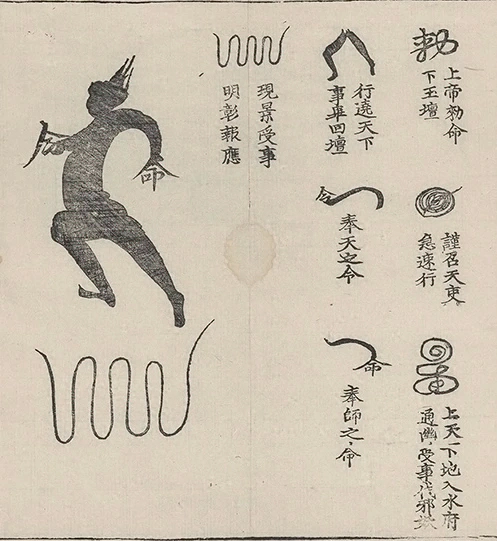 勑
上帝勑命
下玉壇
謹召天吏
急速行
上天下地入水府
通幽受事伐邪
行遶天下
事畢回壇
令
奉天之令
命
奉師之命
現景受事
明彰報應
令
命